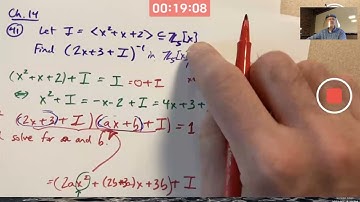 00:19:08
Ch. 14
41) Let I = <x²+x+2> ⊆ ℤ₅[x]
Find (2x+3+I)⁻¹ in ℤ₅[x]
(x²+x+2)+I = I = 0+I
⇔ x²+I = -x-2+I = 4x+3+
(2x+3+I)(ax+b+I) = 1
solve for a and b.
=(2ax²+(2b+3a)x+3b)+I